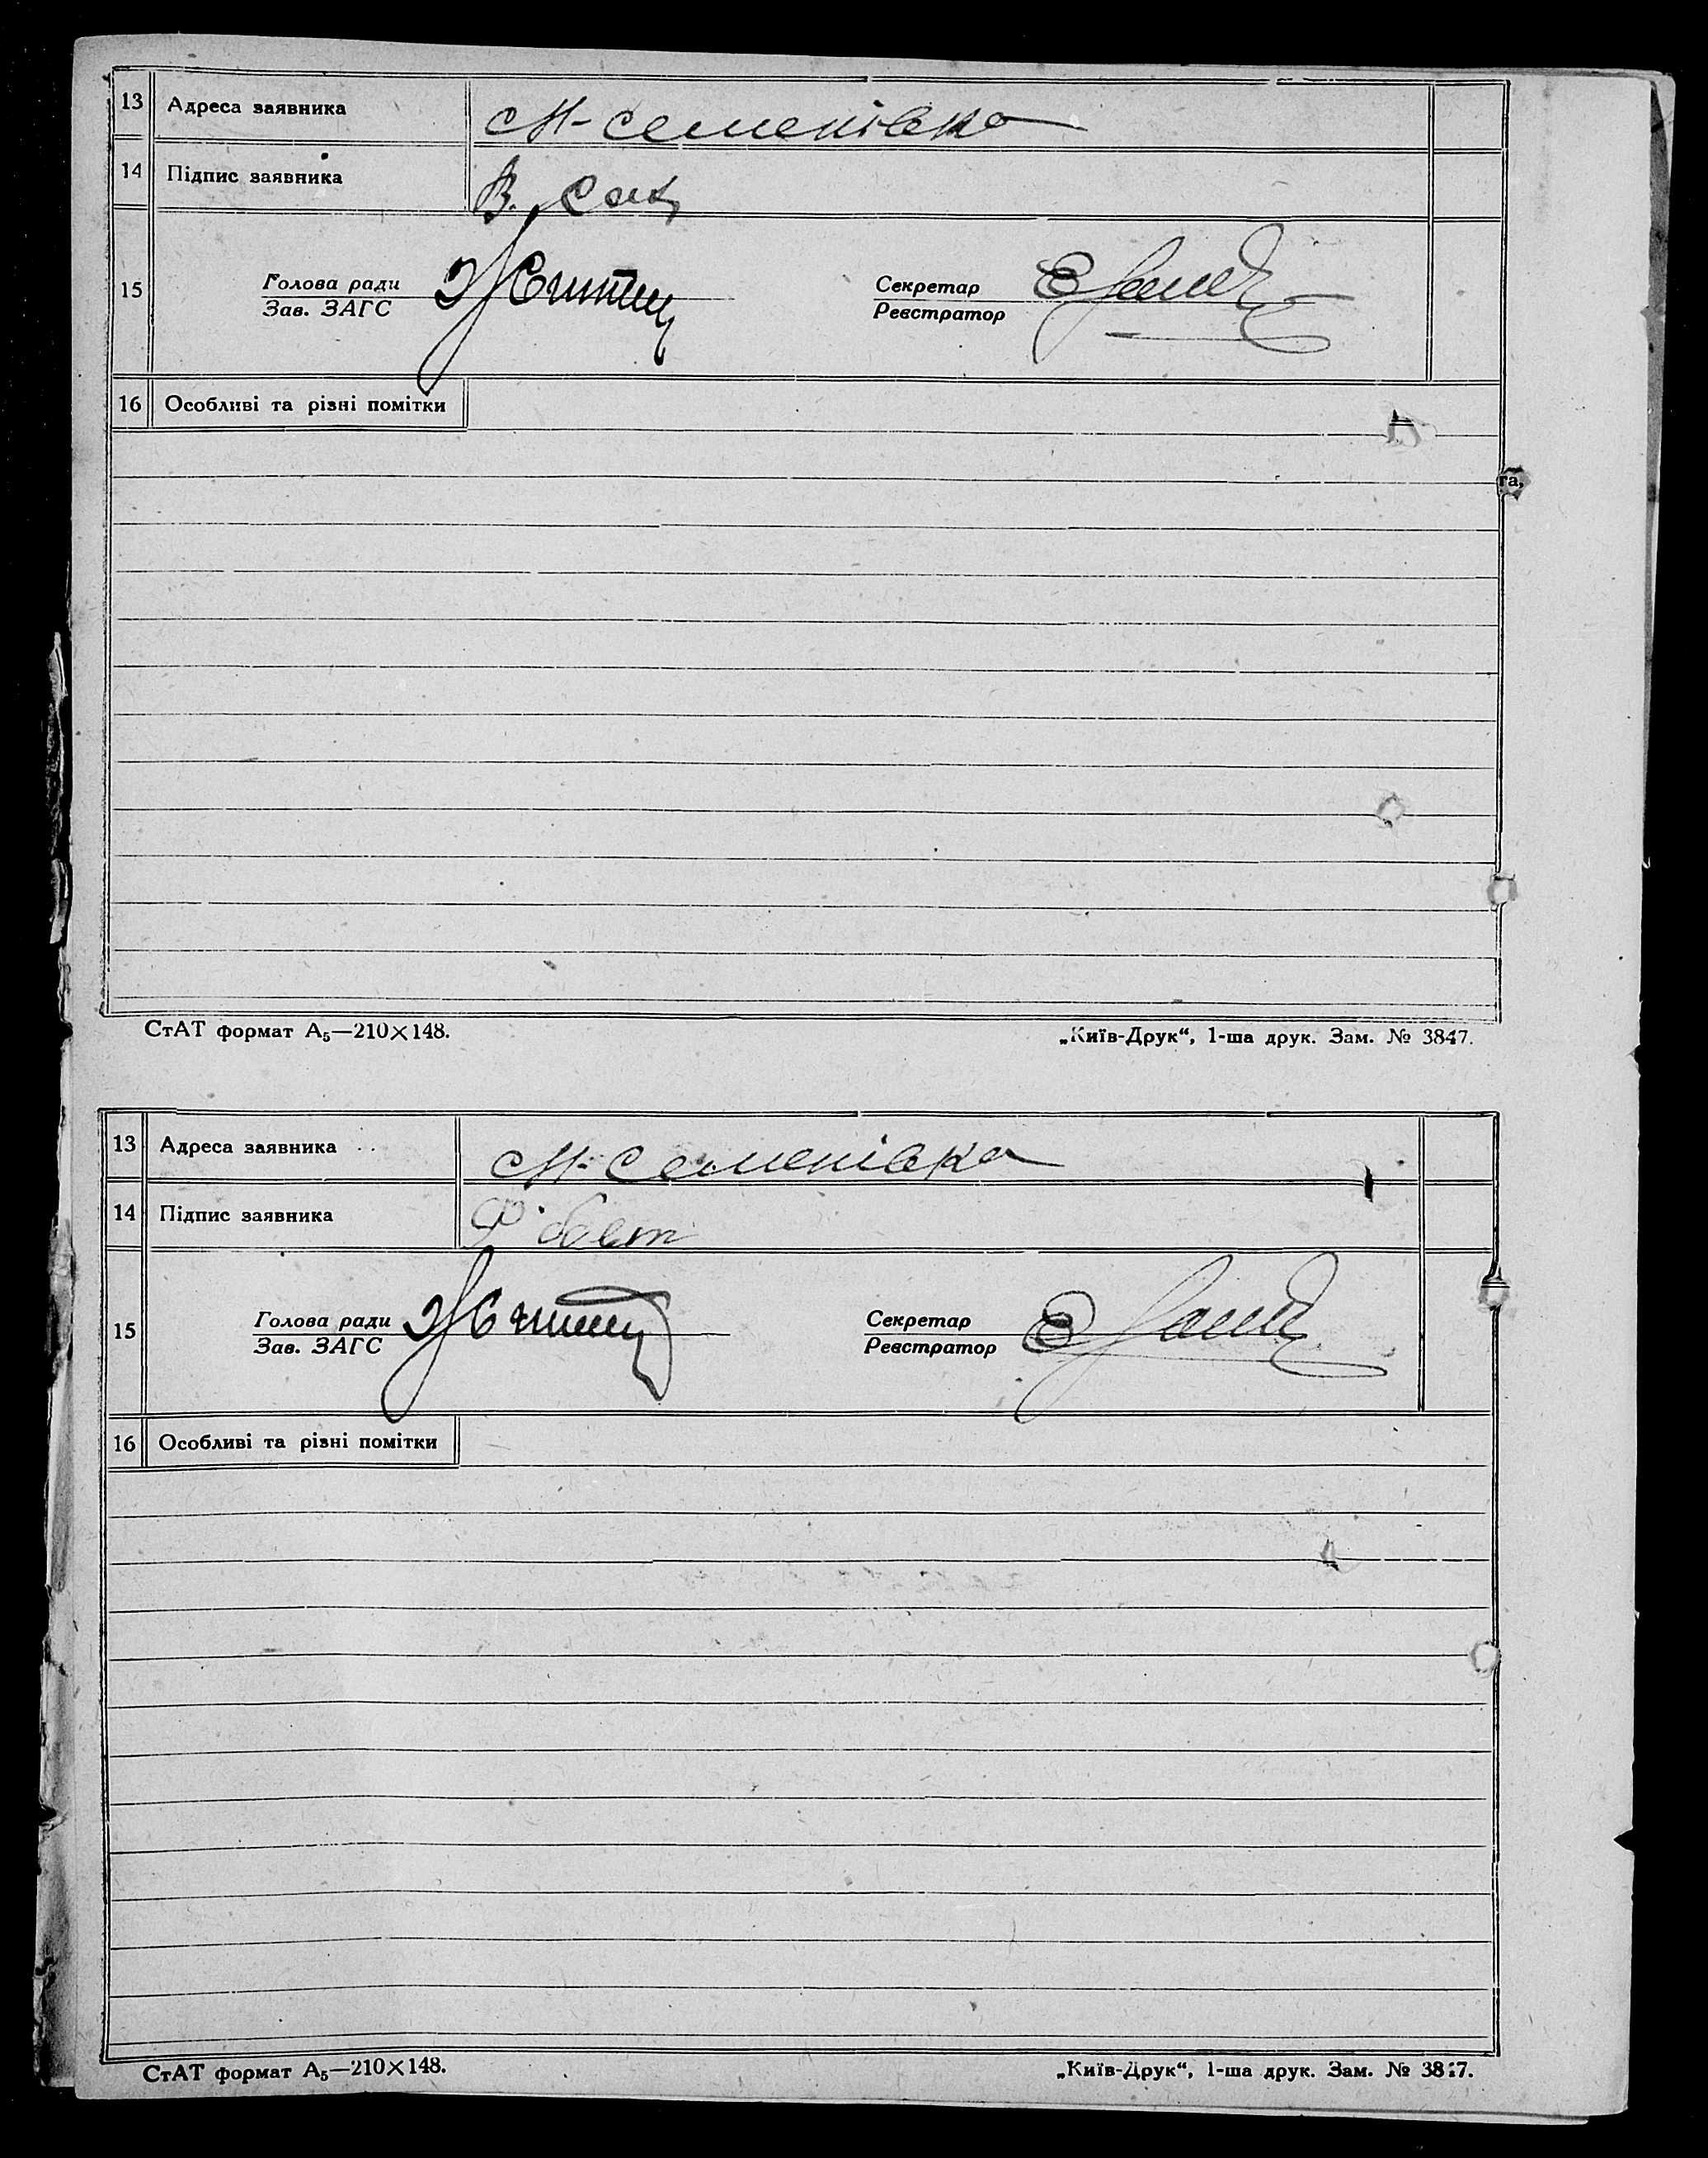 13 Адреса заявника М-Семенівка
14 Підпис заявника В.
15 Голова ради Секретар
Зав. ЗАГС Реєстратор
16 Особливі та різні помітки
га,
СтАТ формат А₅—210×148. „Київ-Друк“, 1-ша друк. Зам. № 3847.
13 Адреса заявника М-Семенівка
14 Підпис заявника
15 Голова ради Секретар
Зав. ЗАГС Реєстратор
16 Особливі та різні помітки
СтАТ формат А₅—210×148. „Київ-Друк“, 1-ша друк. Зам. № 3847.